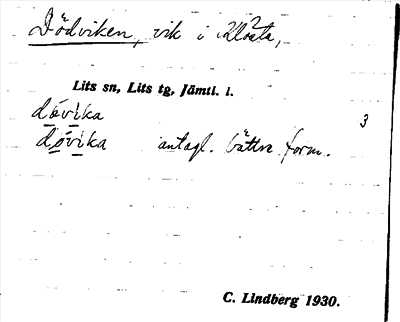 Dödviken, vik i Kloåsta,
Lits sn, Lits tg, Jämtl. l.
dövika 3
dövika antagl. bättre form.
C. Lindberg 1930.